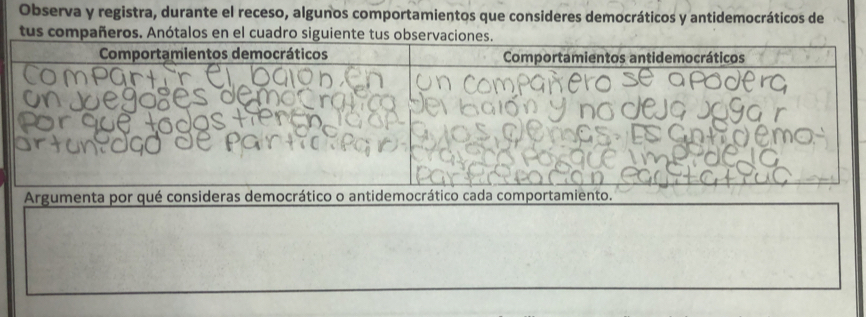 Observa y registra, durante el receso, algunos comportamientos que consideres democráticos y antidemocráticos de
tus compañeros. Anótalos en el cuadro siguiente tus observaciones.
Comportamientos democráticos
compartir el balon, en
un juegoes democratica
por que todos tienen la op
ortunidad de participar
Comportamientos antidemocráticos
un compañero se apodera
del balón y no deja jugar
a los demas. Es antidemo-
cratico porque impide la
participacion equitativa
Argumenta por qué consideras democrático o antidemocrático cada comportamiento.